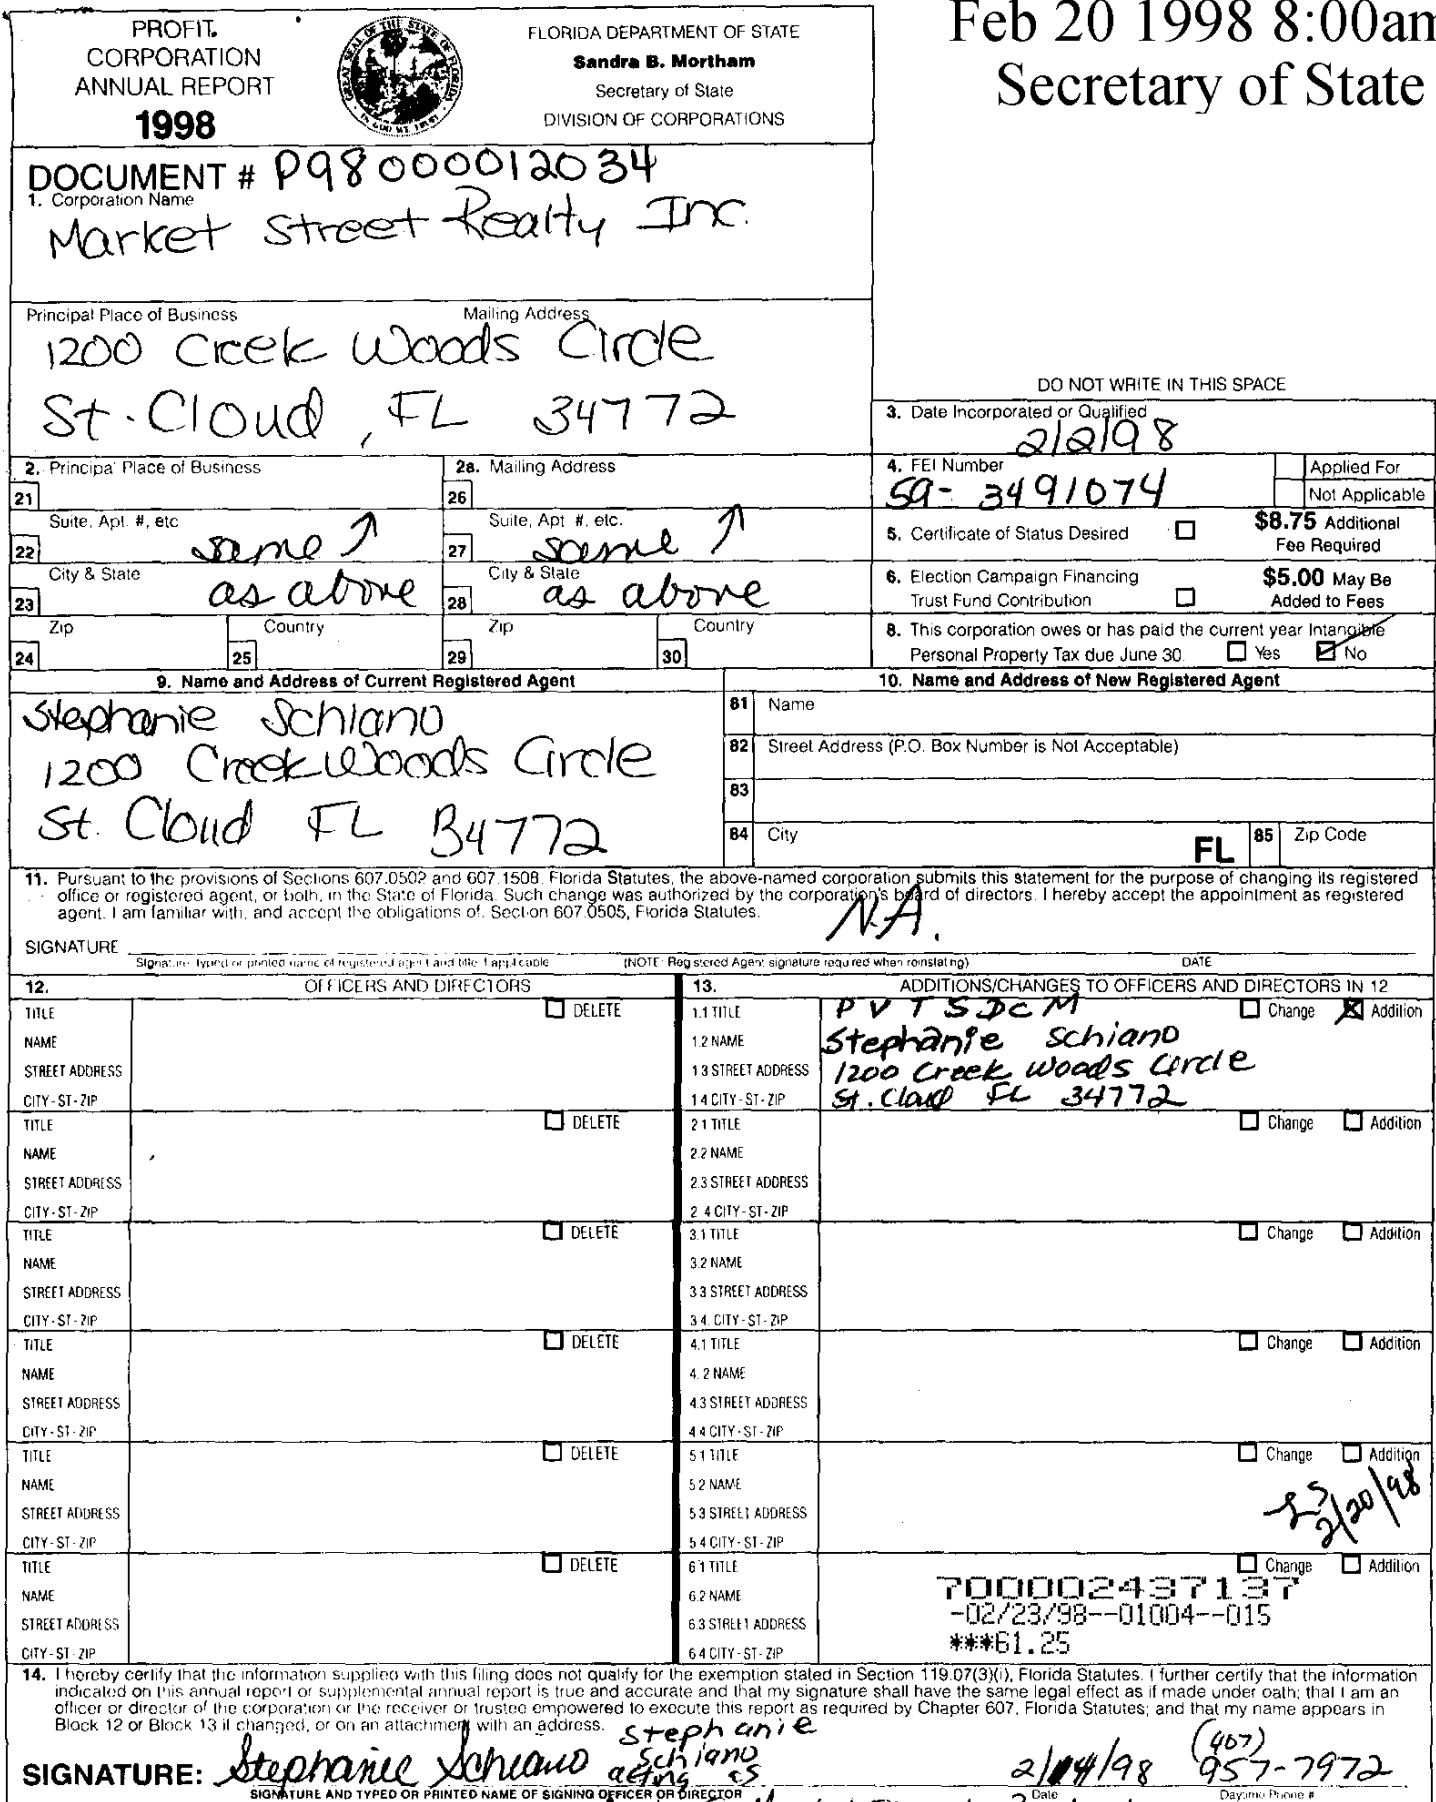 PROFIT
CORPORATION
ANNUAL REPORT
1998
FLORIDA DEPARTMENT OF STATE
Sandra B. Mortham
Secretary of State
DIVISION OF CORPORATIONS
Feb 20 1998 8:00am
Secretary of State
DOCUMENT # P98000012034
1. Corporation Name
Market Street Realty Inc.
Principal Place of Business Mailing Address
1200 Creek Woods Circle
St. Cloud, FL 34772
DO NOT WRITE IN THIS SPACE
3. Date Incorporated or Qualified
2/2/98
2. Principal Place of Business
21
2a. Mailing Address
26
4. FEI Number
59-3491074
Applied For
Not Applicable
Suite, Apt. #, etc
22 same ↑
Suite, Apt #, etc.
27 same ↑
5. Certificate of Status Desired
$8.75 Additional
Fee Required
City & State
23 as above
City & State
28 as above
6. Election Campaign Financing
Trust Fund Contribution
$5.00 May Be
Added to Fees
Zip
24
Country
25
Zip
29
Country
30
8. This corporation owes or has paid the current year Intangible
Personal Property Tax due June 30. Yes No
9. Name and Address of Current Registered Agent
Stephanie Schiano
1200 Creek Woods Circle
St. Cloud FL 34772
10. Name and Address of New Registered Agent
81 Name
82 Street Address (P.O. Box Number is Not Acceptable)
83
84 City FL 85 Zip Code
11. Pursuant to the provisions of Sections 607.0502 and 607.1508, Florida Statutes, the above-named corporation submits this statement for the purpose of changing its registered
office or registered agent, or both, in the State of Florida. Such change was authorized by the corporation's board of directors. I hereby accept the appointment as registered
agent. I am familiar with, and accept the obligations of, Section 607.0505, Florida Statutes.
N.A.
SIGNATURE
Signature, typed or printed name of registered agent and title if applicable (NOTE: Registered Agent signature required when reinstating) DATE
12. OFFICERS AND DIRECTORS
13. ADDITIONS/CHANGES TO OFFICERS AND DIRECTORS IN 12
TITLE DELETE
NAME
STREET ADDRESS
CITY-ST-ZIP
1.1 TITLE P V T S D C M Change Addition
1.2 NAME Stephanie Schiano
1.3 STREET ADDRESS 1200 Creek Woods Circle
1.4 CITY-ST-ZIP St. Cloud FL 34772
TITLE DELETE
NAME
STREET ADDRESS
CITY-ST-ZIP
2.1 TITLE Change Addition
2.2 NAME
2.3 STREET ADDRESS
2.4 CITY-ST-ZIP
TITLE DELETE
NAME
STREET ADDRESS
CITY-ST-ZIP
3.1 TITLE Change Addition
3.2 NAME
3.3 STREET ADDRESS
3.4. CITY-ST-ZIP
TITLE DELETE
NAME
STREET ADDRESS
CITY-ST-ZIP
4.1 TITLE Change Addition
4.2 NAME
4.3 STREET ADDRESS
4.4 CITY-ST-ZIP
TITLE DELETE
NAME
STREET ADDRESS
CITY-ST-ZIP
5.1 TITLE Change Addition
5.2 NAME
5.3 STREET ADDRESS
5.4 CITY-ST-ZIP
2/20/98
TITLE DELETE
NAME
STREET ADDRESS
CITY-ST-ZIP
6.1 TITLE Change Addition
6.2 NAME
6.3 STREET ADDRESS
6.4 CITY-ST-ZIP
700002437137
-02/23/98--01004--015
***61.25
14. I hereby certify that the information supplied with this filing does not qualify for the exemption stated in Section 119.07(3)(i), Florida Statutes. I further certify that the information
indicated on this annual report or supplemental annual report is true and accurate and that my signature shall have the same legal effect as if made under oath; that I am an
officer or director of the corporation or the receiver or trustee empowered to execute this report as required by Chapter 607, Florida Statutes; and that my name appears in
Block 12 or Block 13 if changed, or on an attachment with an address.
SIGNATURE: Stephanie Schiano
Stephanie
Schiano
acting as
2/14/98
(407)
957-7972
SIGNATURE AND TYPED OR PRINTED NAME OF SIGNING OFFICER OR DIRECTOR Date Daytime Phone #